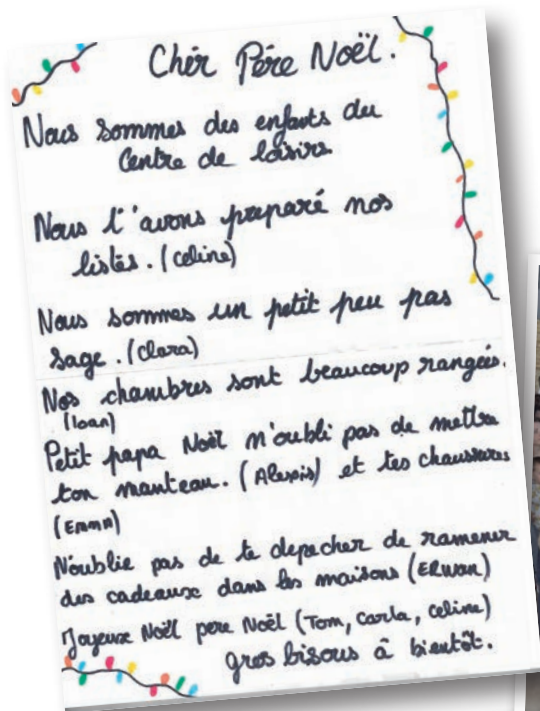 Chèr Père Noël.
Nous sommes des enfants du
Centre de loisirs.
Nous t'avons preparé nos
listes. (celine)
Nous sommes un petit peu pas
sage. (Clara)
Nos chambres sont beaucoup rangées.
(loan)
Petit papa Noël n'oubli pas de mettre
ton manteau. (Alexis) et tes chaussures
(Emma)
N'oublie pas de te depecher de ramener
des cadeaux dans les maisons (ERWAN)
Joyeux Noël pere Noël (Tom, Carla, celine)
gros bisous à bientôt.